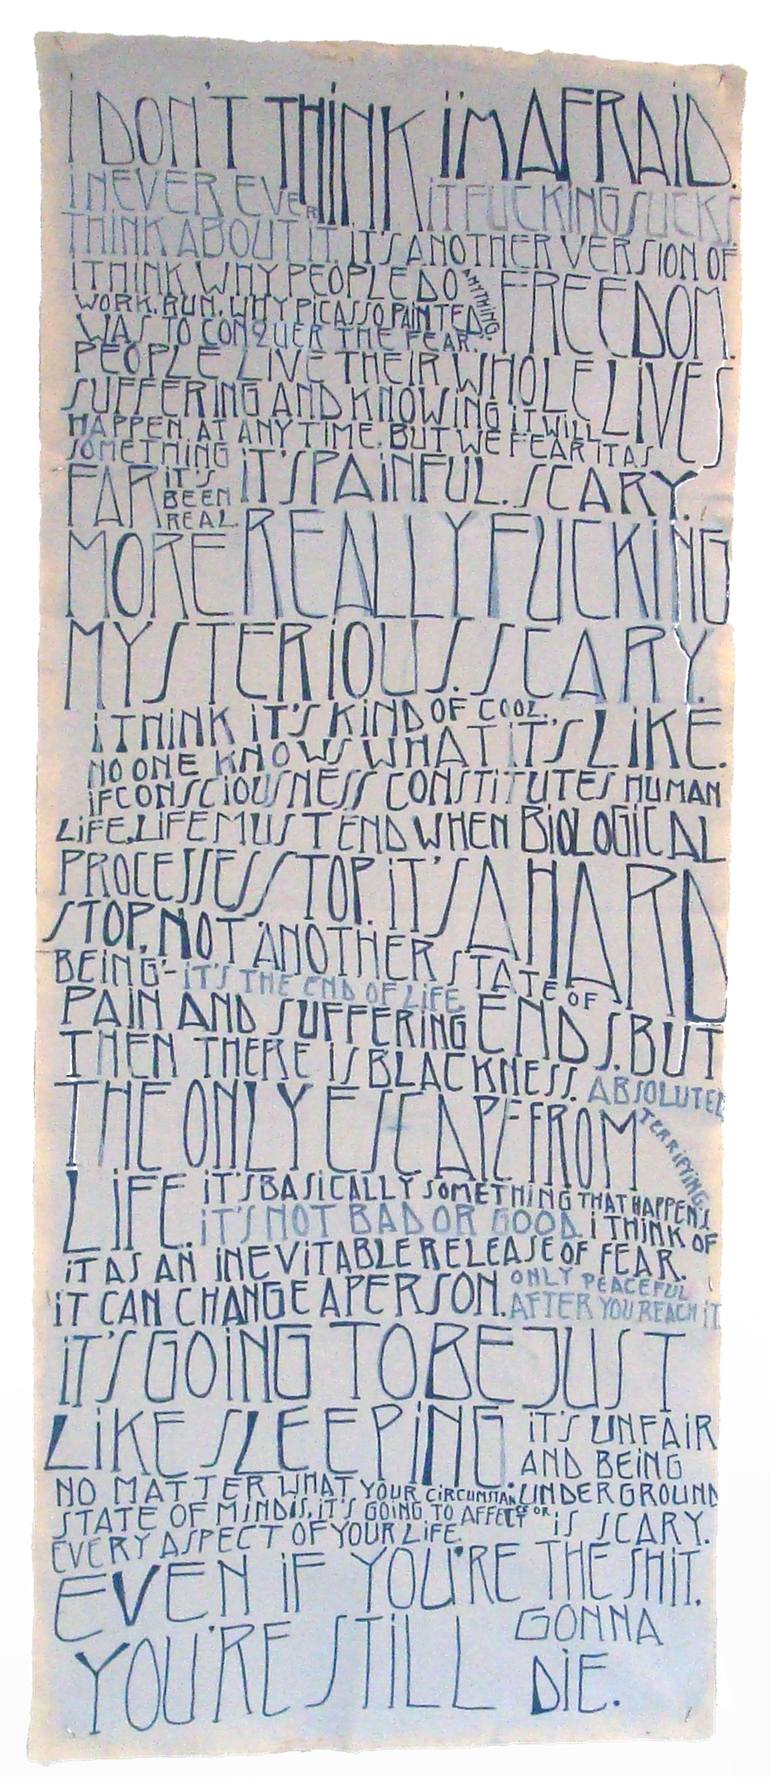 I DON'T THINK I'M AFRAID.
I NEVER EVER IT FUCKING SUCKS.
THINK ABOUT IT. IT'S ANOTHER VERSION OF
I THINK WHY PEOPLE DO ANYTHING. FREEDOM.
WORK. RUN. WHY PICASSO PAINTED
WAS TO CONQUER THE FEAR.
PEOPLE LIVE THEIR WHOLE LIVES
SUFFERING AND KNOWING IT WILL
HAPPEN AT ANY TIME. BUT WE FEAR IT AS
SOMETHING
FAR IT'S BEEN REAL. IT'S PAINFUL. SCARY.
MORE REALLY FUCKING
MYSTERIOUS. SCARY.
I THINK IT'S KIND OF COOL.
NO ONE KNOWS WHAT IT'S LIKE.
IF CONSCIOUSNESS CONSTITUTES HUMAN
LIFE, LIFE MUST END WHEN BIOLOGICAL
PROCESSES STOP. IT'S A HARD
STOP, NOT ANOTHER STATE OF
BEING - IT'S THE END OF LIFE.
PAIN AND SUFFERING ENDS. BUT
THEN THERE IS BLACKNESS. ABSOLUTELY
THE ONLY ESCAPE FROM TERRIFYING.
LIFE. IT'S BASICALLY SOMETHING THAT HAPPENS.
IT'S NOT BAD OR GOOD. I THINK OF
IT AS AN INEVITABLE RELEASE OF FEAR.
IT CAN CHANGE A PERSON. ONLY PEACEFUL
AFTER YOU REACH IT.
IT'S GOING TO BE JUST
LIKE SLEEPING IT'S UNFAIR
AND BEING
NO MATTER WHAT YOUR CIRCUMSTANCE OR UNDERGROUND
STATE OF MIND IS, IT'S GOING TO AFFECT IS SCARY.
EVERY ASPECT OF YOUR LIFE.
EVEN IF YOU'RE THE SHIT.
YOU'RE STILL GONNA
DIE.